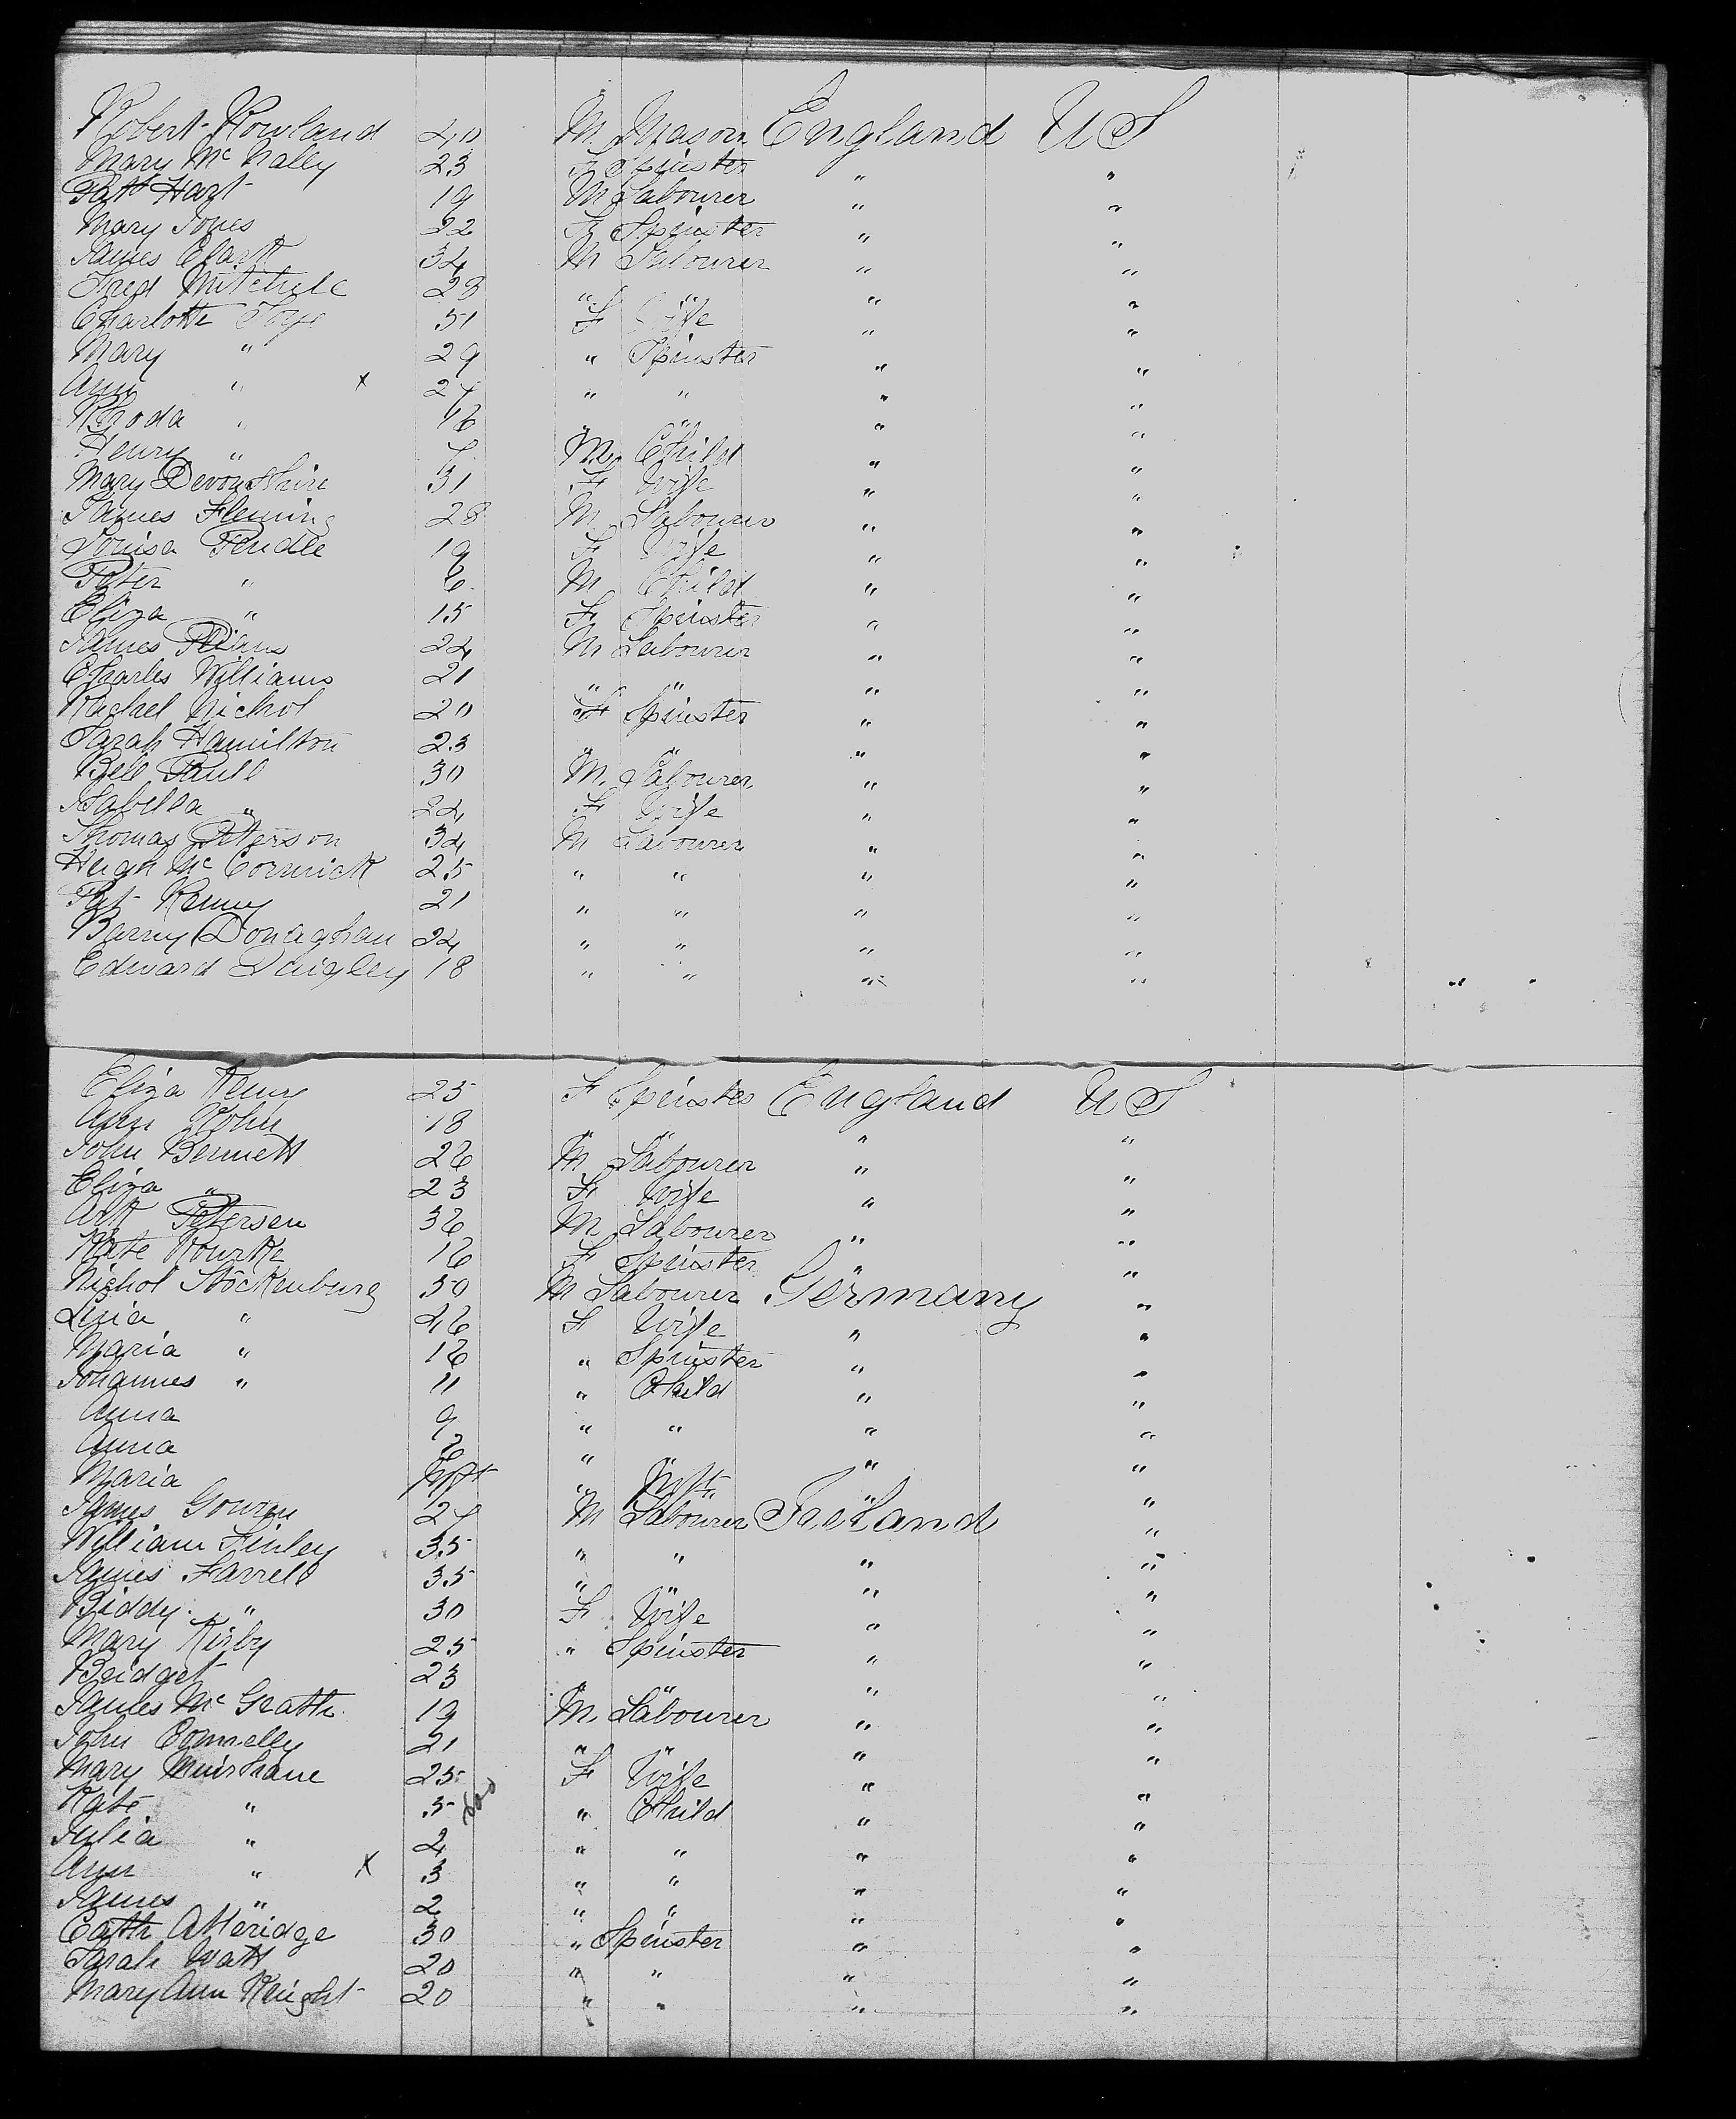 Robert Rowland 40 M Mason England U S
Mary Mc Nalley 23 F Spinster " "
Patt Hart 19 M Labourer " "
Mary Jones 22 F Spinster " "
James Clark 34 M Labourer " "
Fred Mitchele 28 " " " "
Charlotte 51 F Wife " "
Mary " 29 " Spinster " "
Ann " x 24 " " " "
Rhoda " 16 " " " "
Henry " 7 M Child " "
Mary Devonshire 31 F Wife " "
James Fleming 28 M Labourer " "
Louisa Pendle 19 F Wife " "
Peter " 6 M Child " "
Eliza " 15 F Spinster " "
James 24 M Labourer " "
Charles Williams 21 " " " "
Rachael Nichol 20 F Spinster " "
Sarah Hamilton 23 " " " "
Bell Paull 30 M Labourer " "
Isabella " 24 F Wife " "
Thomas Peterson 34 M Labourer " "
Hugh Mc Cormick 25 " " " "
Pat Kenny 21 " " " "
Barny Donaghan 24 " " " "
Edward Quigley 18 " " " "
Eliza Kenny 25 F Spinster England U S
Ann 18 " " " "
John Bennett 26 M Labourer " "
Eliza " 23 F Wife " "
Petersen 36 M Labourer " "
Kate Rourke 16 F Spinster " "
Nichol Stöckenburg 50 M Labourer Germany "
Lina " 46 F Wife " "
Maria " 16 " Spinster " "
Johannes " 11 " Child " "
Anna 9 " " " "
Anna 6 " " " "
Maria Inft " Inft " "
James 27 M Labourer Ireland "
William Finley 35 " " " "
James Farrell 35 " " " "
Biddy " 30 F Wife " "
Mary Kirby 25 " Spinster " "
Bridget 23 " " " "
James Mc Grath 19 M Labourer " "
John Connelly 21 " " " "
Mary Muirshane 25 F Wife " "
Kate " 5 " Child " "
Julia " 4 " " " "
Ann " x 3 " " " "
James " 2 " " " "
Cath Atteridge 30 " Spinster " "
Sarah Watt 20 " " " "
Mary Ann Knight 20 " " " "